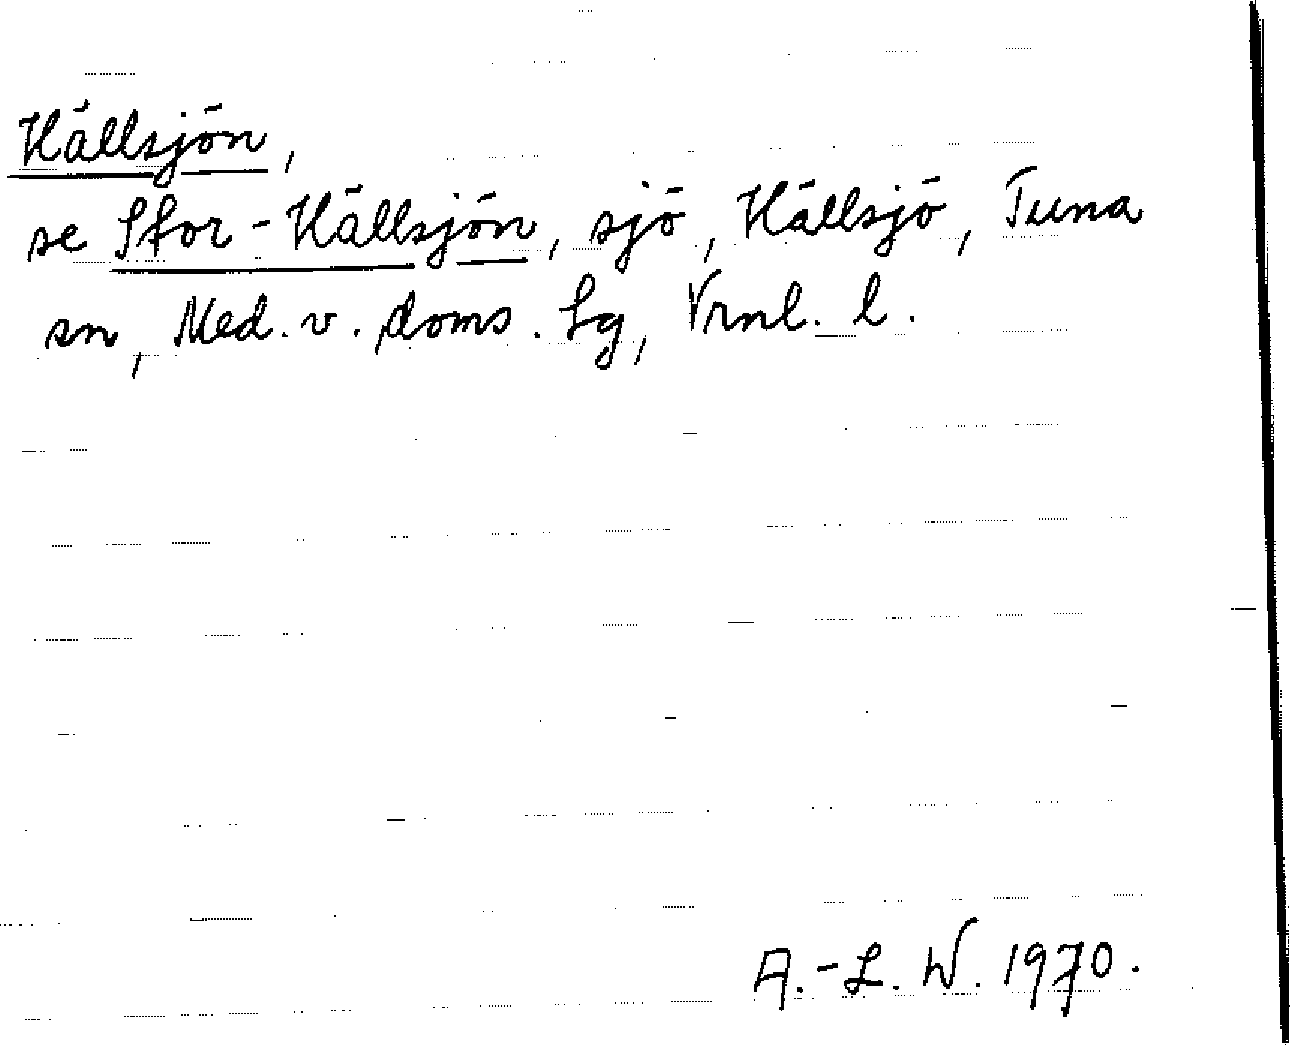 Hällsjön,
se Stor-Hällsjön, sjö, Hällsjö, Tuna
sn, Med. v. doms. lg, Vrnl. l.
A.-L. W. 1970.